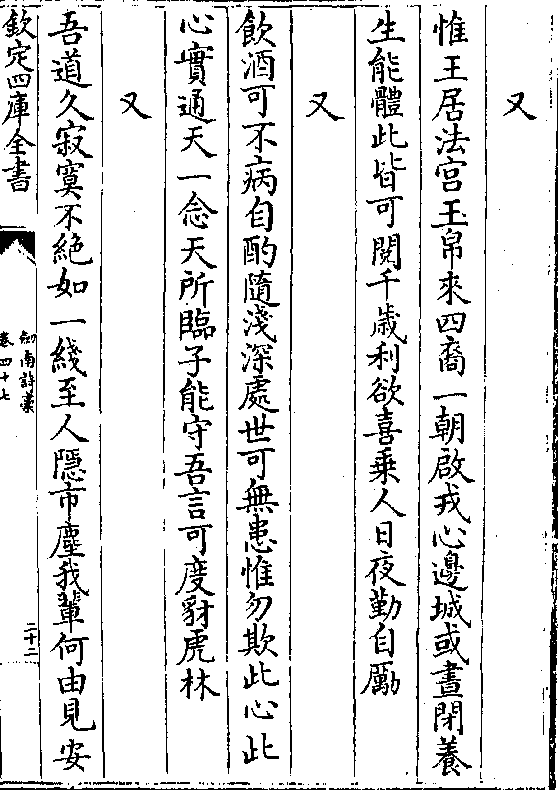 又
惟王居法宫玉帛來四裔一朝啟戎心邊城或晝閉養
生能體此皆可閱千歲利欲喜乗人日夜勤自勵
又
飲酒可不病自酌隨淺深處世可無患惟勿欺此心此
心實通天一念天所臨子能守吾言可度豺虎林
又
吾道久寂寞不絶如一綫至人隠市塵我輩何由見安
欽定四庫全書
劒南詩藁
卷四十七
二十二